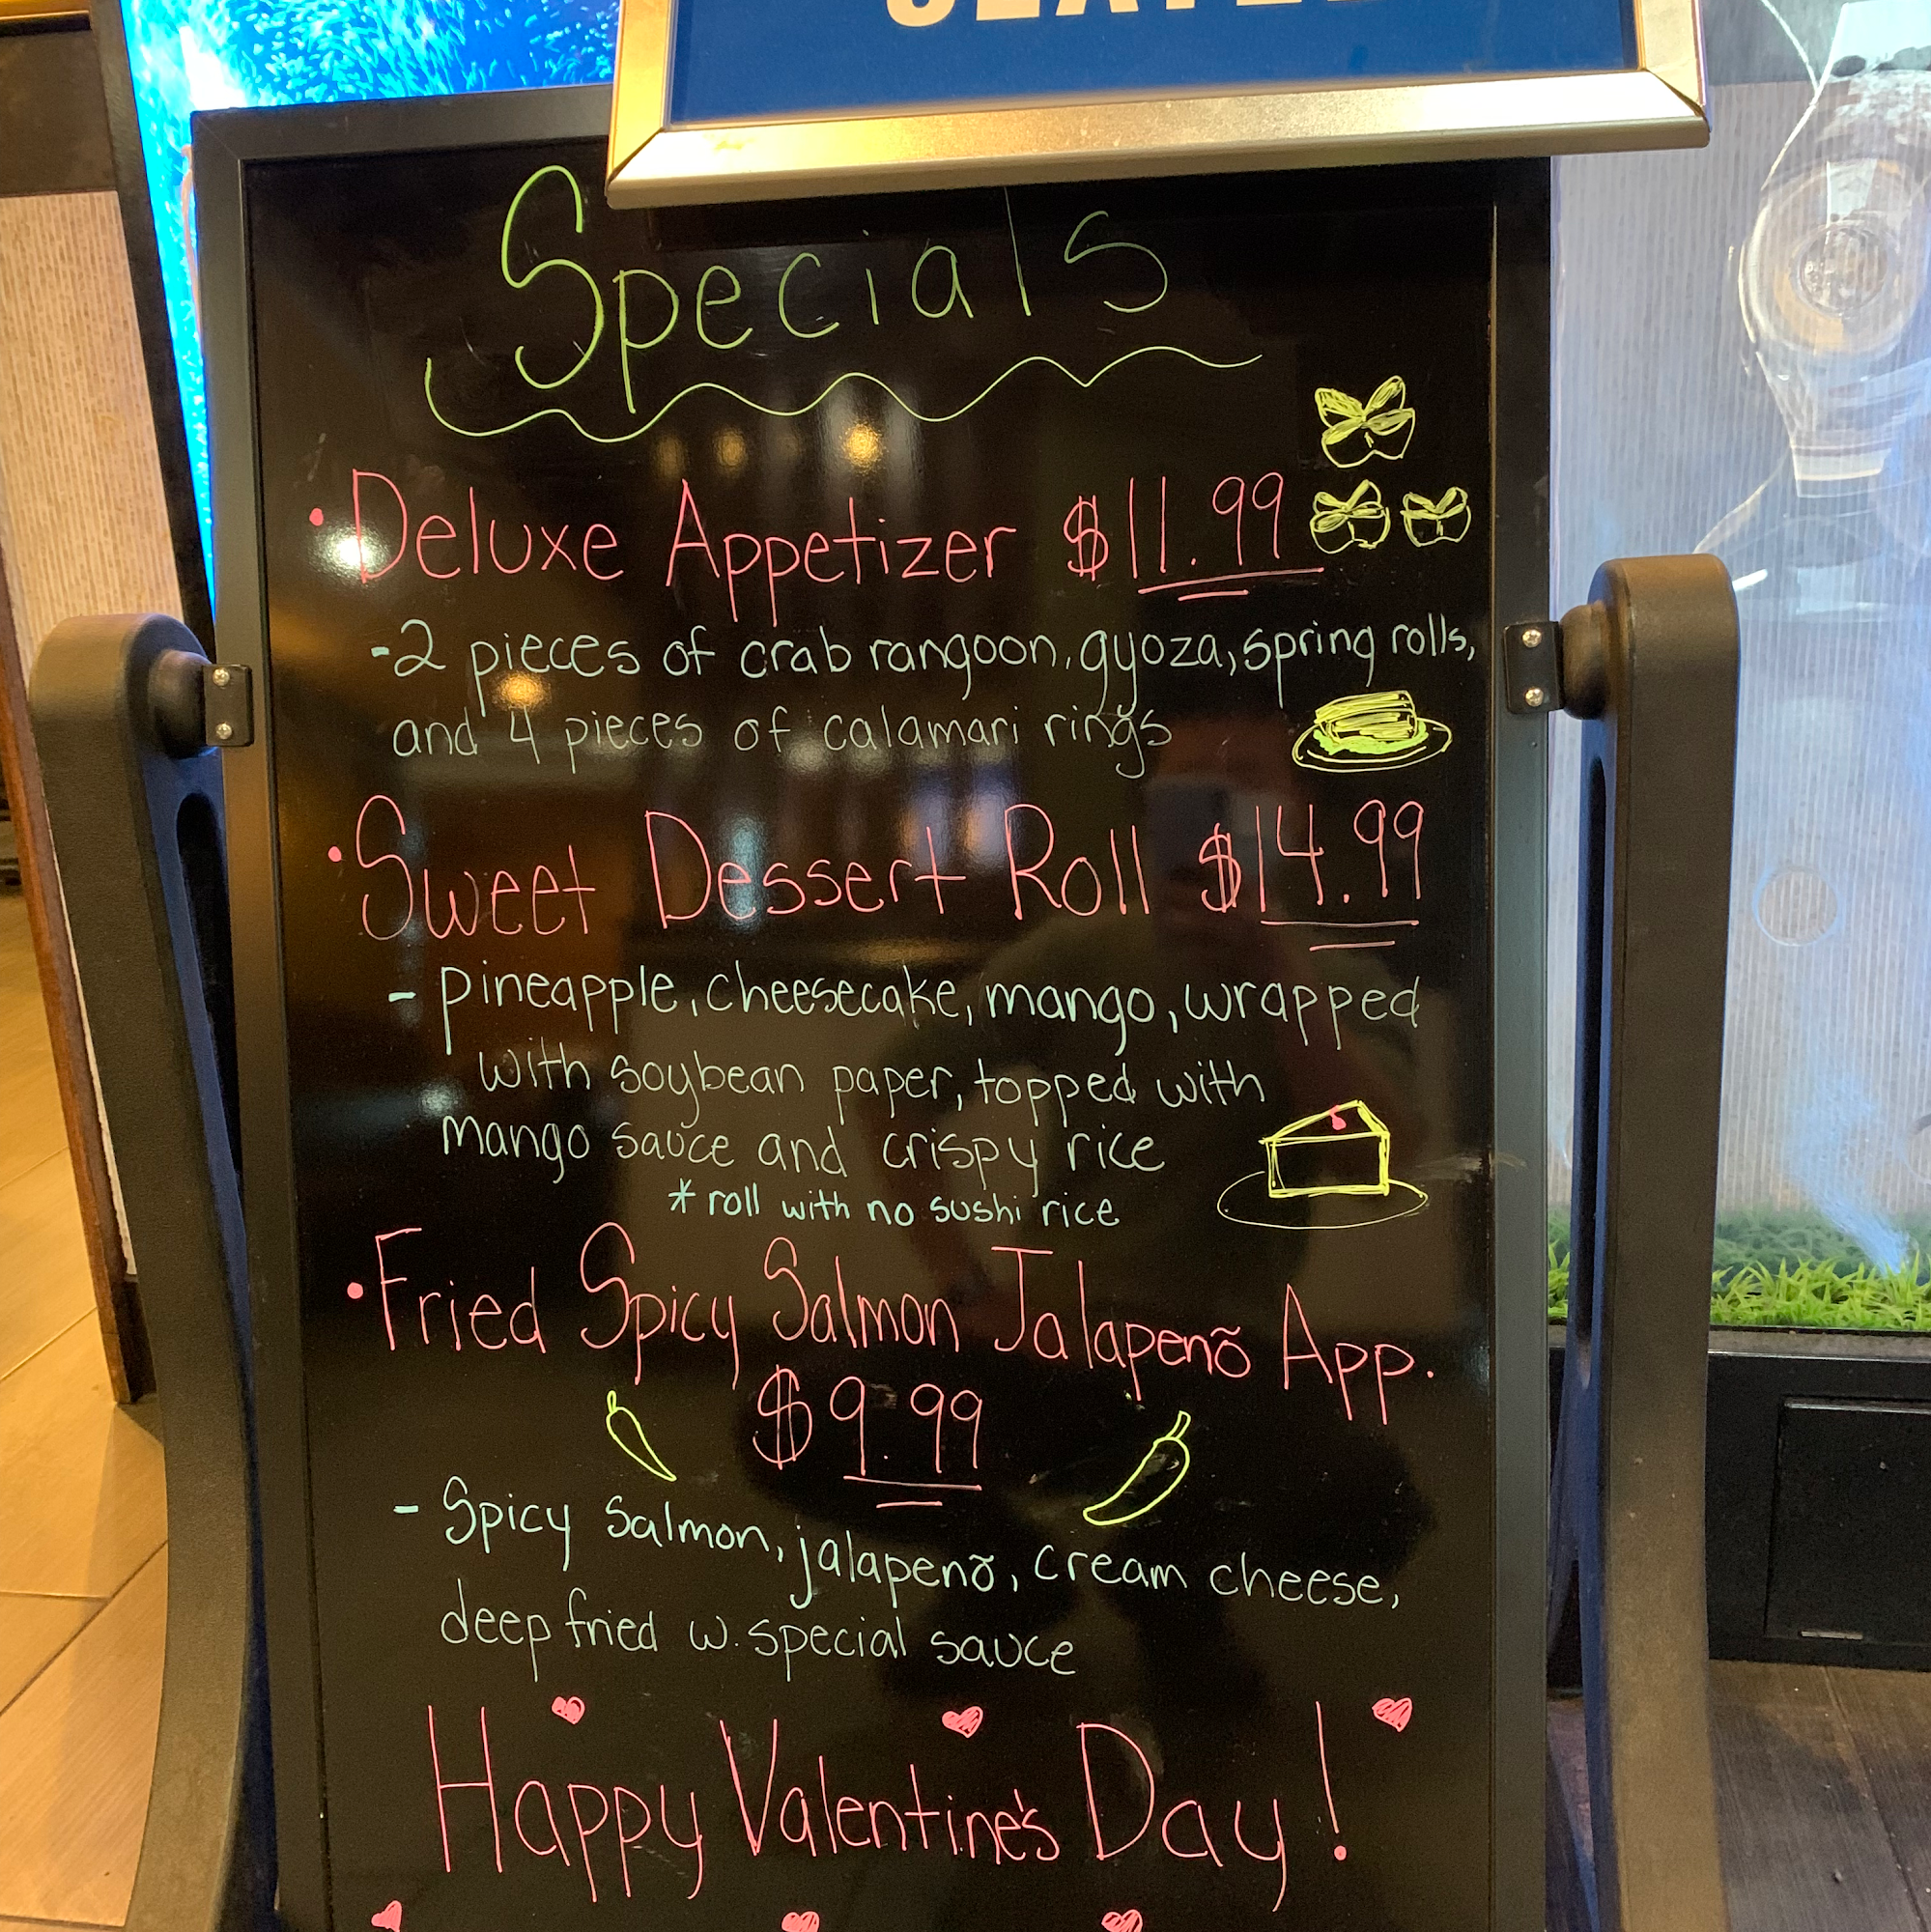 Specials
• Deluxe Appetizer $11.99
-2 pieces of crab rangoon, gyoza, spring rolls,
and 4 pieces of calamari rings
• Sweet Dessert Roll $14.99
- pineapple, cheesecake, mango, wrapped
with soybean paper, topped with
mango sauce and crispy rice
* roll with no sushi rice
• Fried Spicy Salmon Jalapenõ App.
$9.99
- Spicy Salmon, jalapenõ, cream cheese,
deep fried w. special sauce
Happy Valentine's Day!